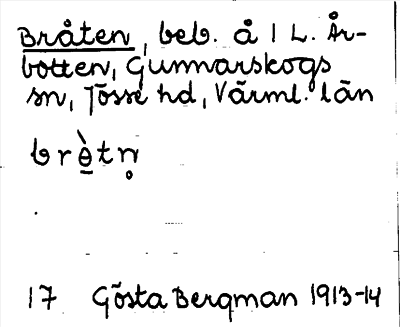 Bråten, beb. å 1 L. År-
botten, Gunnarskogs
sn, Jösse hd, Värml. län
brè̱tn̥
17 Gösta Bergman 1913-14